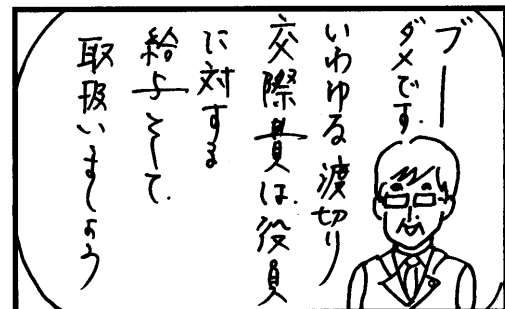 ブー
ダメです.
いわゆる渡切り
交際費は.役員
に対する
給与として.
取扱いましょう